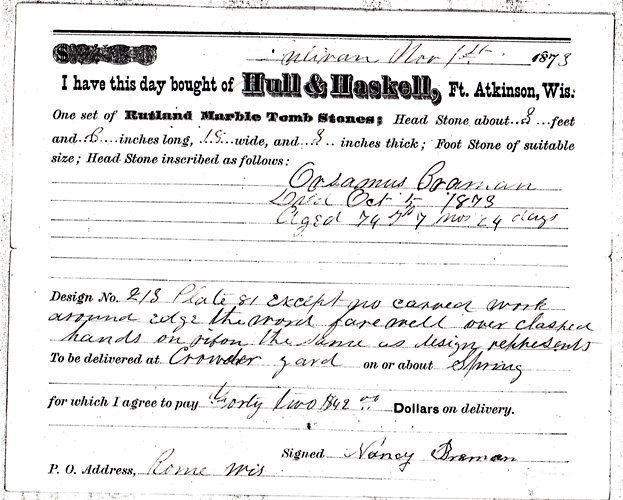 Nov 1st. 1873
I have this day bought of Hull & Haskell, Ft. Atkinson, Wis:
One set of Rutland Marble Tomb Stones; Head Stone about 3 feet
and 6 inches long, 18 wide, and 3 inches thick; Foot Stone of suitable
size; Head Stone inscribed as follows:
Orsamus Braman
Died Oct 5 1873
Aged 74 Ys 7 mos 24 days
Design No. 213 Plate 81 except no carved work
around edge the word farewell over clasped
hands on ribon the same as design represents
To be delivered at Crowder yard on or about Spring
for which I agree to pay Forty two $42 00 Dollars on delivery.
Signed Nancy Braman
P. O. Address, Rome Wis